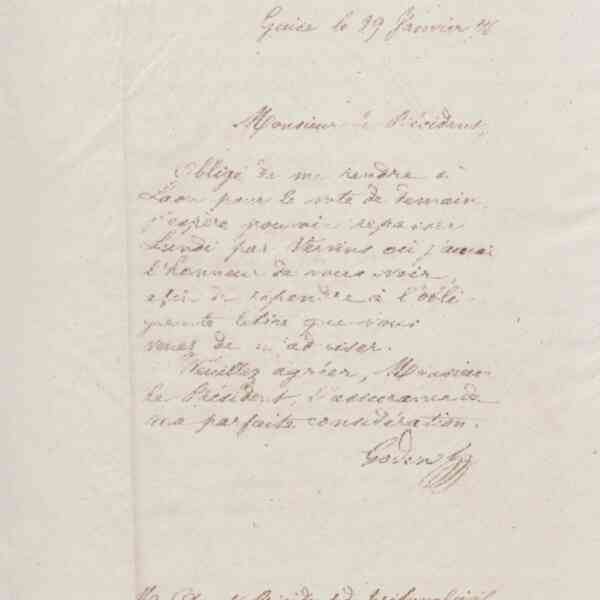 Guise le 29 Janvier 76
Monsieur le Président,
Obligé de me rendre à
Laon pour le vote de demain,
j'espère pouvoir repasser
Lundi par Vervins où j'aurai
l'honneur de vous voir,
afin de répondre à l'obli-
geante lettre que vous
venez de m'adresser.
Veuillez agréer, Monsieur
le Président, l'assurance de
ma parfaite considération.
Godin
Président du tribunal civil